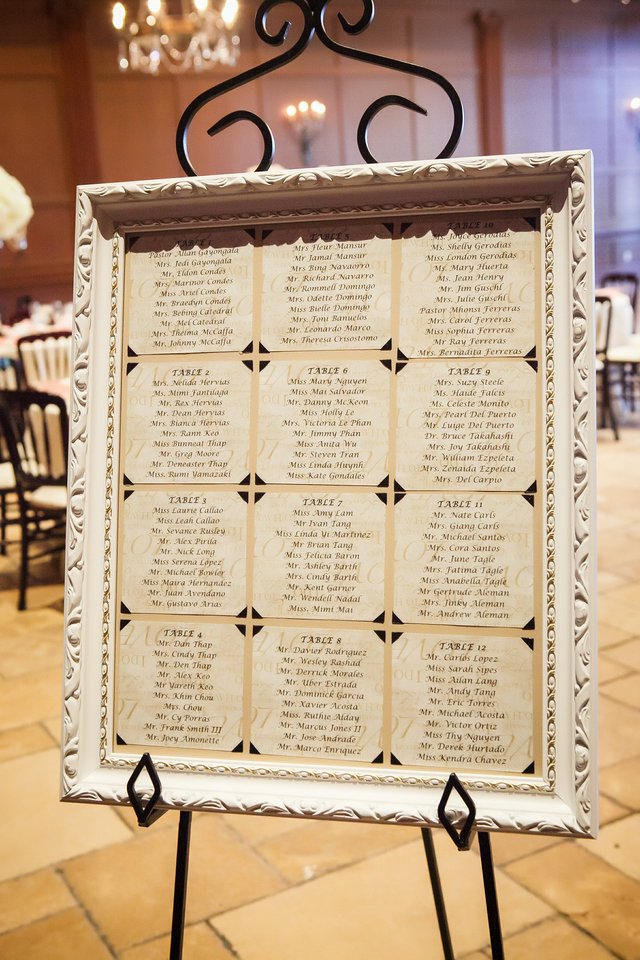 TABLE 1
Pastor Allan Gayongala
Mrs. Jedi Gayongala
Mr. Eldon Condes
Mrs. Marinor Condes
Miss Ariel Condes
Mr. Braedyn Condes
Mr. Bebing Catedral
Mr. Mel Catedral
Mrs. Thelma McCaffa
Mr. Johnny McCaffa
TABLE 2
Mrs. Nelida Hervias
Ms. Mimi Fantilaga
Mr. Rex Hervias
Mr. Dean Hervias
Ms. Bianca Hervias
Mrs. Rann Keo
Miss Bunneat Thap
Mr. Greg Moore
Mr. Deneaster Thap
Ms. Rumi Yamazaki
TABLE 3
Miss Laurie Callao
Miss Leah Callao
Mr. Sevance Rusley
Mr. Alex Pirila
Mr. Nick Long
Miss Serena Lopez
Mr. Michael Bowler
Miss Maira Hernandez
Mr. Juan Avendano
Mr. Gustavo Arias
TABLE 4
Mr. Dan Thap
Mrs. Cindy Thap
Mr. Den Thap
Mr. Alex Keo
Mr Yareth Keo
Mrs. Khin Chou
Mys. Chou
Mr. Cy Porras
Mr. Frank Smith III
Mr. Joey Amonette
TABLE 5
Mrs Fleur Mansur
Mr Jamal Mansur
Mrs Bing Navarro
Mr. Richard Navarro
Mr. Rommell Domingo
Mrs. Odette Domingo
Miss Bielle Domingo
Mrs. Toni Banuelos
Mr. Leonardo Marco
Mrs. Theresa Crisostomo
TABLE 6
Miss Mary Nguyen
Miss Mai Salvador
Mr. Danny McKeon
Miss Holly Le
Mrs. Victoria Le Phan
Mr. Jimmy Phan
Miss Anita Wu
Mr. Steven Tran
Miss Linda Huynh
Miss Kate Gondales
TABLE 7
Miss Amy Lam
Mr Ivan Tang
Miss Linda Yi Martinez
Mr Brian Tang
Miss Felicia Baron
Mr. Ashley Barth
Mrs. Cindy Barth
Mr. Kent Garner
Mr. Wendell Nadal
Miss. Mimi Mai
TABLE 8
Mr. Davier Rodriguez
Mr. Wesley Rashad
Mr. Derrick Morales
Mr. Uber Estrada
Mr. Dominick Garcia
Mr. Xavier Acosta
Miss. Ruthie Alday
Mr. Marcus Jones II
Mr. Jose Andrade
Mr. Marco Enriquez
TABLE 10
Ms. Joyce Gerodias
Ms. Shelly Gerodias
Miss London Gerodias
Ms. Mary Huerta
Ms. Jean Henry
Mr. Jim Guschl
Mrs. Julie Guschl
Pastor Mhonsi Ferreras
Mrs. Carol Ferreras
Miss Sophia Ferreras
Mr Ray Ferreras
Mrs. Bernadita Ferreras
TABLE 9
Mrs. Suzy Steele
Ms. Haide Falcis
Ms. Celeste Monito
Mrs. Pearl Del Puerto
Mr. Luige Del Puerto
Dr. Bruce Takahashi
Mrs. Joy Takahashi
Mr. William Ezpeleta
Mrs. Zenaida Ezpeleta
Mrs. Del Carpio
TABLE 11
Mr. Nate Carls
Mrs. Giang Carls
Mr. Michael Santos
Mrs. Cora Santos
Mr. June Tagle
Mrs. Fatima Tagle
Miss Anabella Tagle
Mr Gertrude Aleman
Mrs. Jinky Aleman
Mr. Andrew Aleman
TABLE 12
Mr. Carlos Lopez
Miss Sarah Sipes
Miss Ailan Lang
Mr. Andy Tang
Mr. Eric Torres
Mr. Michael Acosta
Mr. Victor Ortiz
Miss Thy Nguyen
Mr. Derek Hurtado
Miss Kendra Chavez